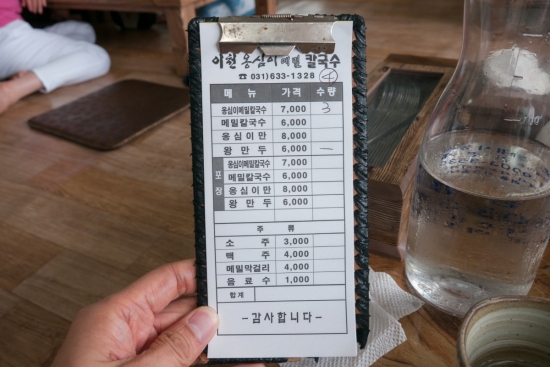 이천 옹심이메밀 칼국수
☎ 031)633-1328 ④
메 뉴 가 격 수 량
옹심이메밀칼국수 7,000 3
메밀칼국수 6,000
옹심이만 8,000
왕 만 두 6,000 一
포장 옹심이메밀칼국수 7,000
메밀칼국수 6,000
옹심이만 8,000
왕 만 두 6,000
주 류
소 주 3,000
맥 주 4,000
메밀막걸리 4,000
음 료 수 1,000
합계
-감사합니다-